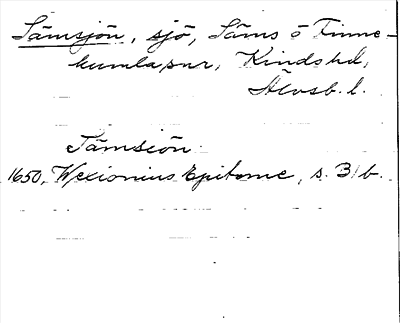 Sämsjön, sjö, Säms o Finne-
kumla snr, Kinds hd,
Älvsb. l.
Sämsiön
1650, Wexionius Epitome, s. B 1 b.